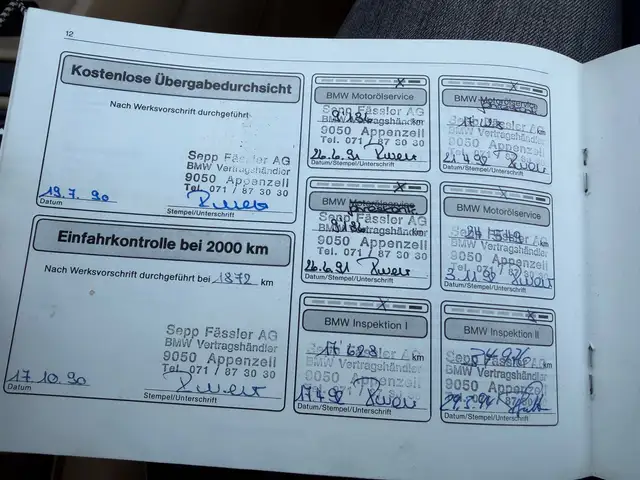 12
Kostenlose Übergabedurchsicht
Nach Werksvorschrift durchgeführt
Sepp Fässler AG
BMW Vertragshändler
9050 Appenzell
Tel. 071 / 87 30 30
19.7.90
Datum
Stempel/Unterschrift
Einfahrkontrolle bei 2000 km
Nach Werksvorschrift durchgeführt bei 1872 km
Sepp Fässler AG
BMW Vertragshändler
9050 Appenzell
Tel. 071 / 87 30 30
17.10.90
Datum
Stempel/Unterschrift
X
BMW Motorölservice
Sepp Fässler AG
km
BMW Vertragshändler
9050 Appenzell
Tel. 071 / 87 30 30
26.6.91
Datum/Stempel/Unterschrift
X
BMW Motorölservice
Sepp Fässler AG
km
BMW Vertragshändler
9050 Appenzell
Tel. 071 / 87 30 30
26.6.91
Datum/Stempel/Unterschrift
X
BMW Inspektion I
17 623 km
Sepp Fässler AG
BMW Vertragshändler
9050 Appenzell
17.4.92
Datum/Stempel/Unterschrift
X
BMW Motorölservice
Sepp Fässler AG
BMW Vertragshändler
9050 Appenzell
Tel. 071 / 87 30 30
Datum/Stempel/Unterschrift
X
BMW Motorölservice
Sepp Fässler AG
BMW Vertragshändler
9050 Appenzell
Datum/Stempel/Unterschrift
X
BMW Inspektion II
Sepp Fässler AG
km
BMW Vertragshändler
9050 Appenzell
Datum/Stempel/Unterschrift